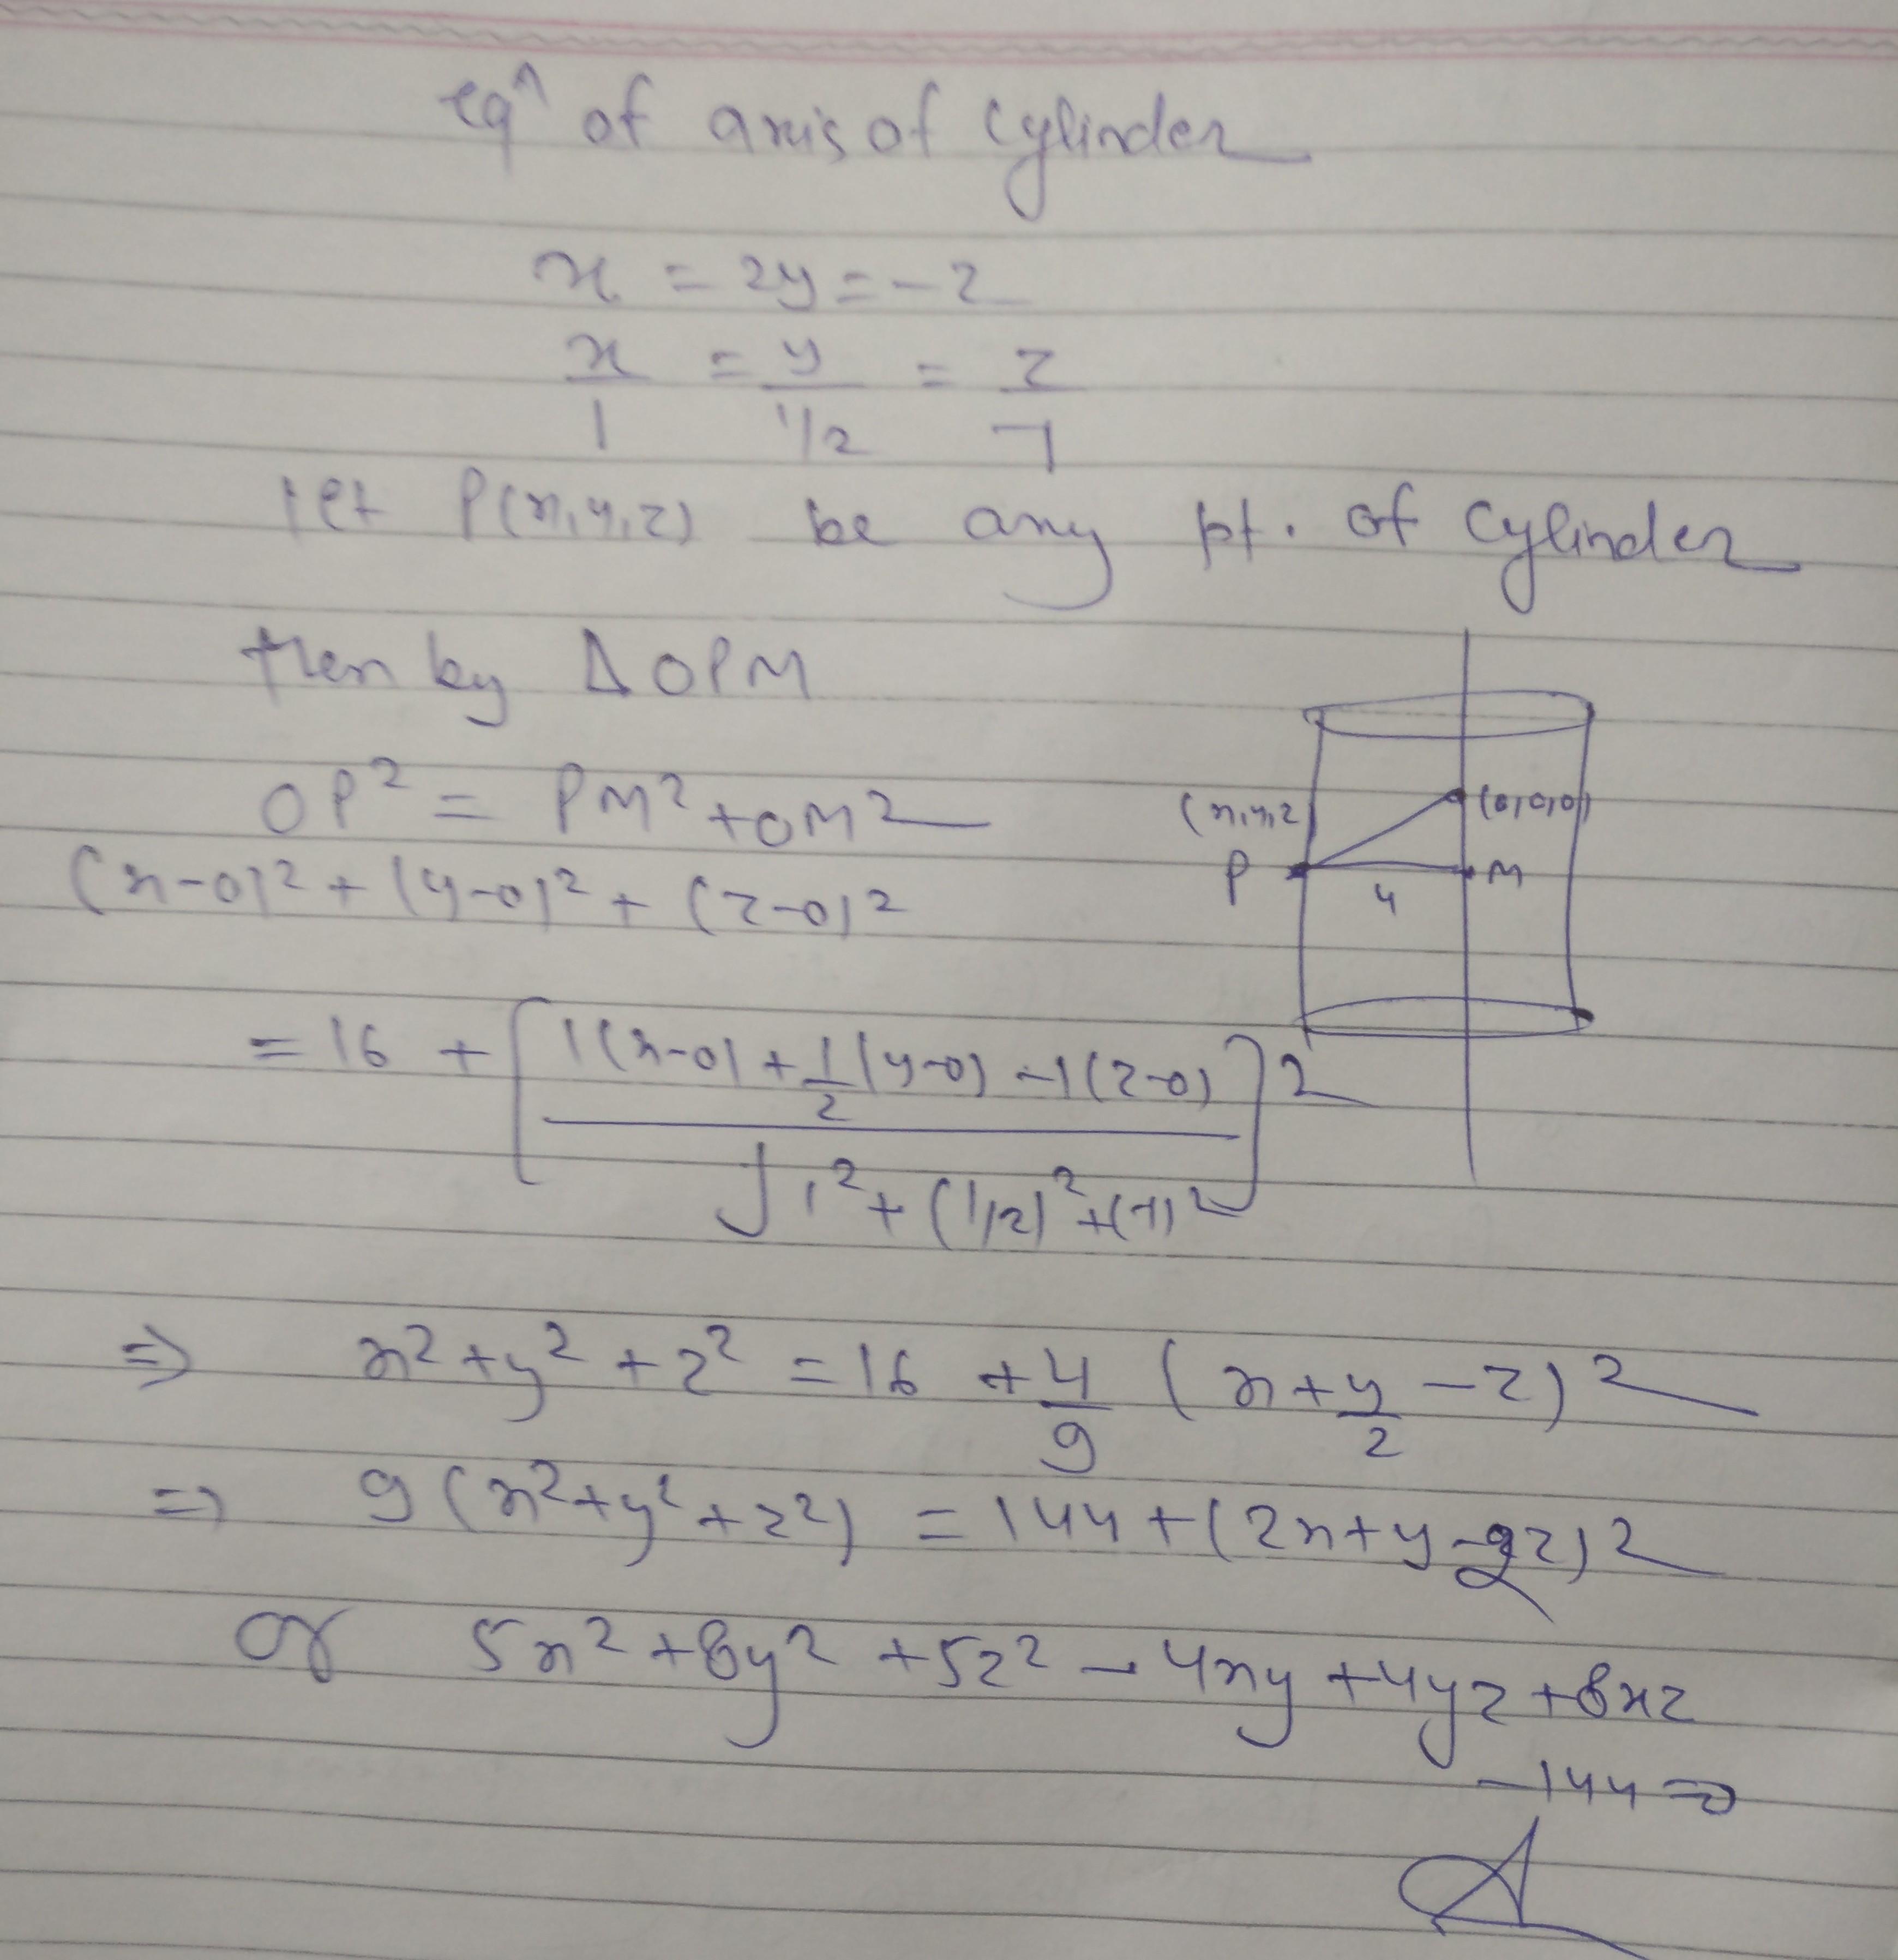 eqⁿ of axis of cylinder
x = 2y = -z
x/1 = y/1/2 = z/-1
let P(x,y,z) be any pt. of cylinder
then by ΔOPM
OP² = PM² + OM²
(x-0)² + (y-0)² + (z-0)²
(x,y,z
(0,0,0)
P
M
4
= 16 + [1(x-0) + 1/2(y-0) -1(z-0) / √1² + (1/2)² + (-1)²]²
⇒ x² + y² + z² = 16 + 4/9 (x + y/2 - z)²
⇒ 9(x² + y² + z²) = 144 + (2x + y - 2z)²
or 5x² + 8y² + 5z² - 4xy + 4yz + 8xz
-144 = 0